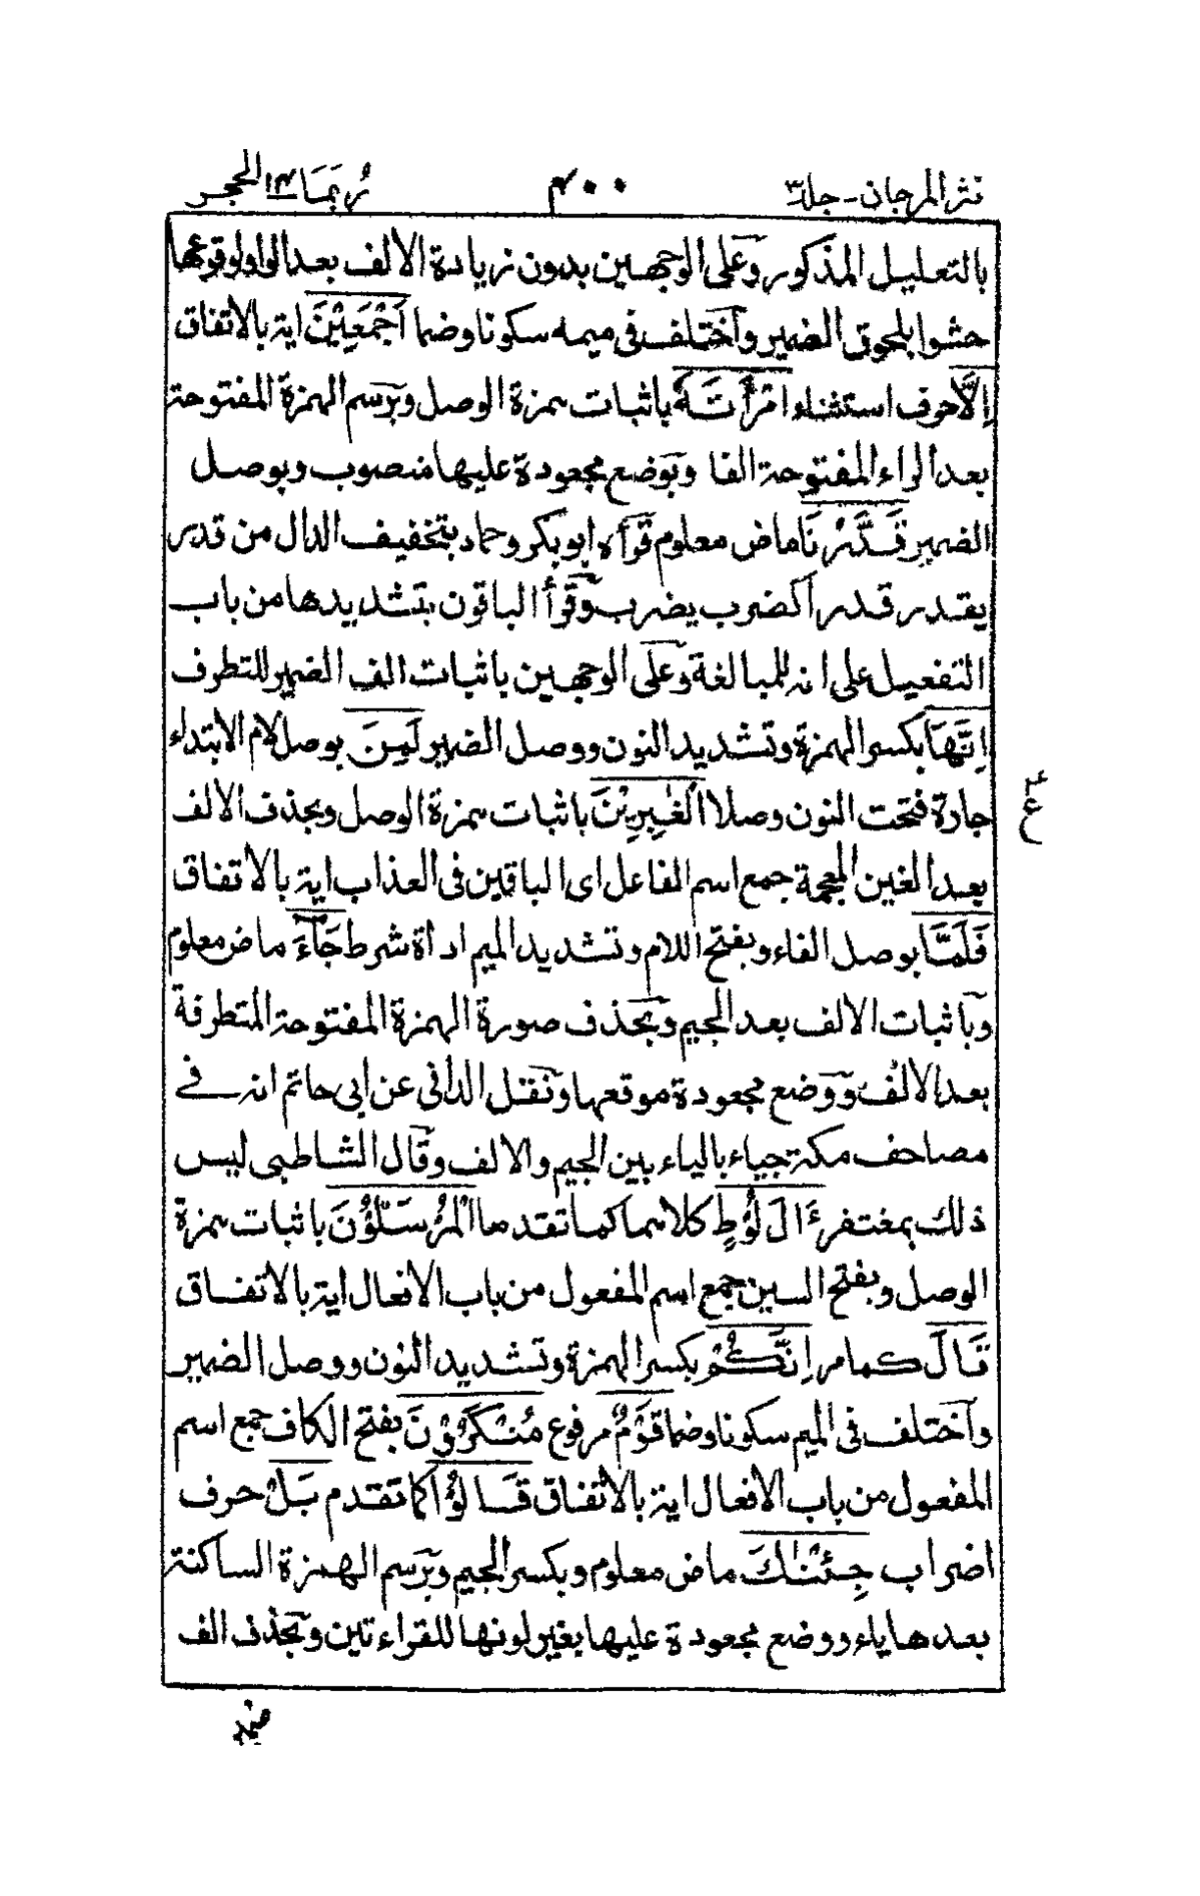 نثر المرجان - جلد ٣ ۴٠٠ رُبَمَا ١٤ الحجر
بالتعليل المذكور وعلى الوجهين بدون زيادة الالف بعد الواو لوقوعها
حشوا بلحوق الضمير واختلف فى ميمه سكونا وضما اَجْمَعِيْنَ اية بالاتفاق
اِلَّا حرف استثناء امْرَأَتَهٗ باثبات همزة الوصل وبرسم الهمزة المفتوحة
بعد الراء المفتوحة الفا وبوضع مجعودة عليها منصوب وبوصل
الضمير قَدَّرْنَا ماض معلوم قرأه ابو بكر وحماد بتخفيف الدال من قدر
يقدر قدرا كضرب يضرب وقرأ الباقون بتشديدها من باب
التفعيل على انه للمبالغة وعلى الوجهين باثبات الف الضمير للتطرف
اِنَّهَا بكسر الهمزة وتشديد النون ووصل الضمير لَمِنَ بوصل لام الابتداء
جارة فتحت النون وصلا الْغٰبِرِيْنَ باثبات همزة الوصل وبحذف الالف
بعد الغين المعجمة جمع اسم الفاعل اى الباقين فى العذاب اية بالاتفاق
فَلَمَّا بوصل الفاء وبفتح اللام وتشديد الميم اداة شرط جَآءَ ماض معلوم
وباثبات الالف بعد الجيم وبحذف صورة الهمزة المفتوحة المتطرفة
بعد الالف ووضع مجعودة موقعها ونقل الدانى عن ابى حاتم انه فے
مصاحف مكة جياء بالياء بين الجيم والالف وقال الشاطبى ليس
ذلك بمغتفر ءَالَ لُوْطٍ كلاهما كما تقدما الْمُرْسَلُوْنَ باثبات همزة
الوصل وبفتح السين جمع اسم المفعول من باب الافعال اية بالاتفاق
قَالَ كما مر اِنَّكُمْ بكسر الهمزة وتشديد النون ووصل الضمير
واختلف فى الميم سكونا وضما قَوْمٌ مرفوع مُنْكَرُوْنَ بفتح الكاف جمع اسم
المفعول من باب الافعال اية بالاتفاق قَالُوْا كما تقدم بَلْ حرف
اضراب جِئْنٰكَ ماض معلوم وبكسر الجيم وبرسم الهمزة الساكنة
بعدها ياء ووضع مجعودة عليها بغير لونها للقراءتين وبحذف الف
ع